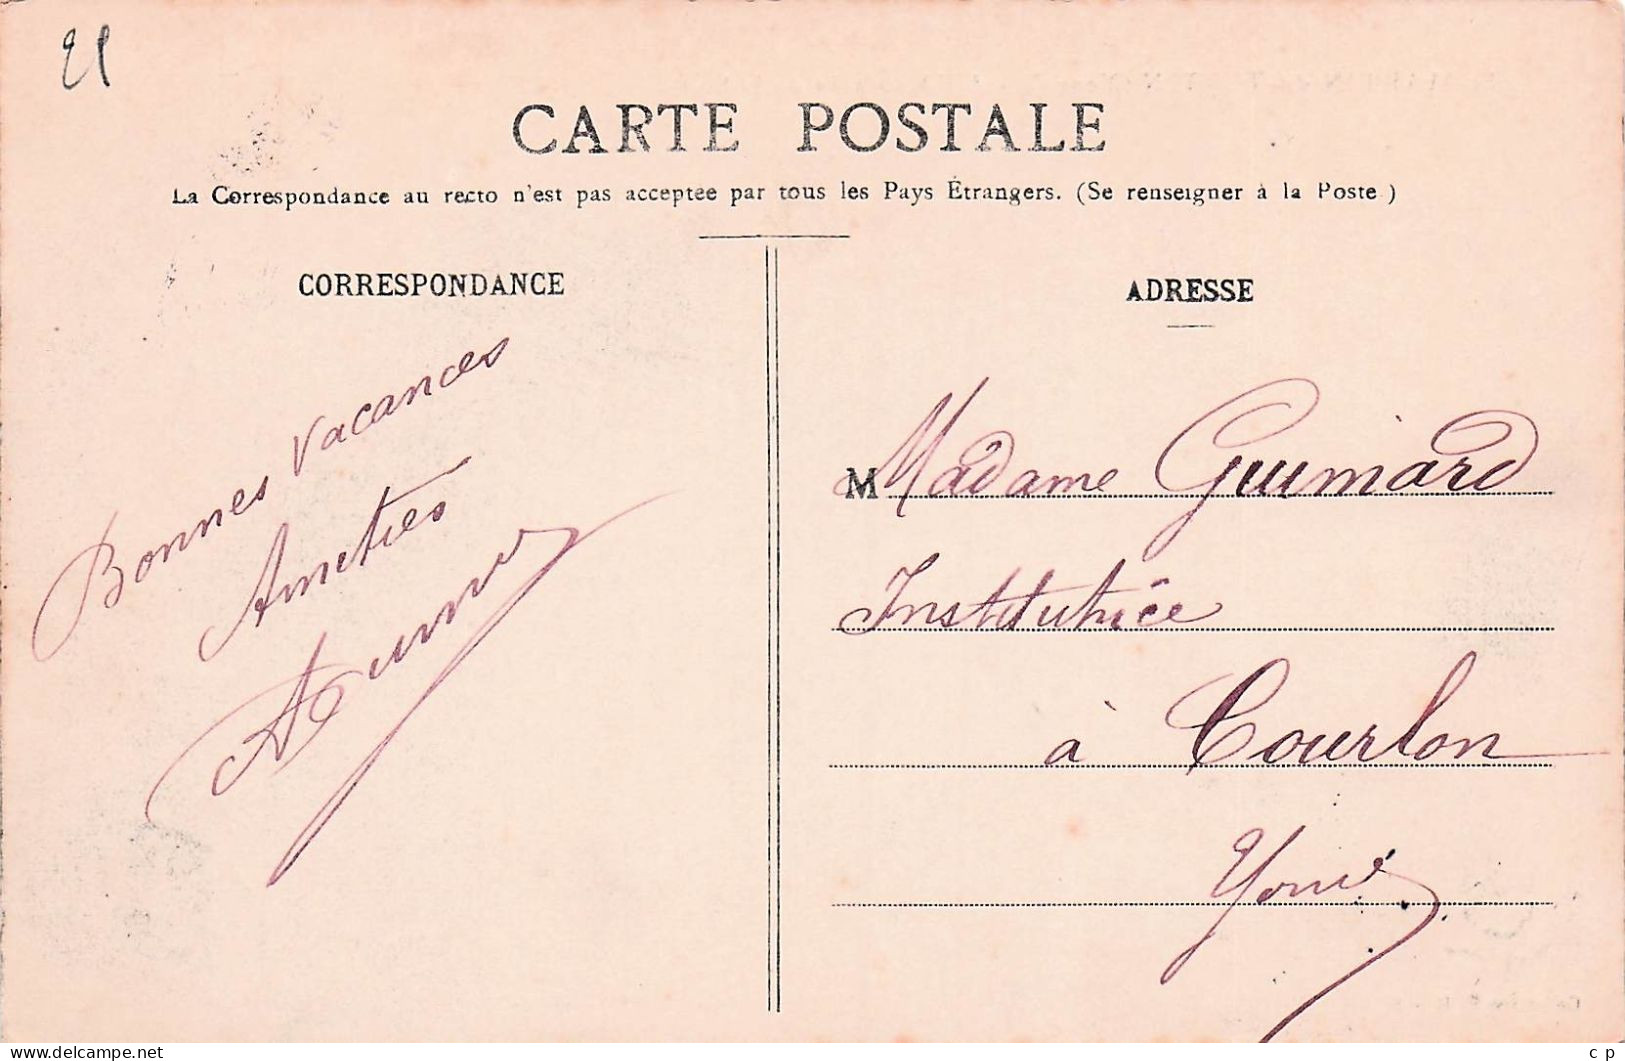 21
CARTE POSTALE
La Correspondance au recto n'est pas acceptée par tous les Pays Étrangers. (Se renseigner à la Poste)
CORRESPONDANCE
Bonnes Vacances
Amitiés
ADRESSE
M Madame Guimard
Institutrice
à Courlon
Yonne
delcampe.net
c p